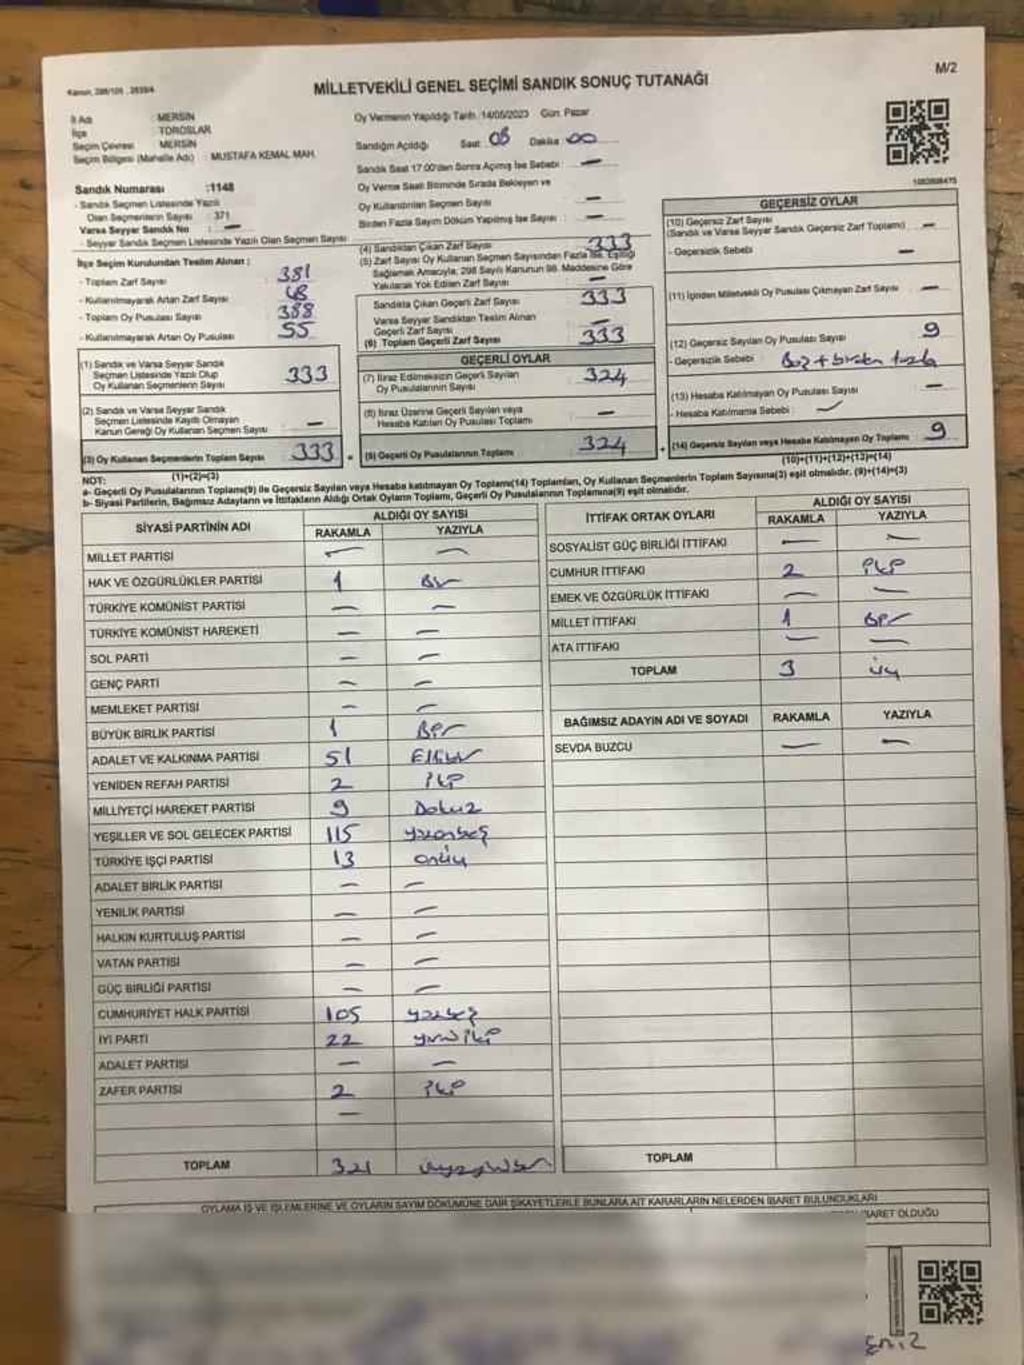 M/2
MİLLETVEKİLİ GENEL SEÇİMİ SANDIK SONUÇ TUTANAĞI
İl Adı : MERSİN
İlçe : TOROSLAR
Seçim Çevresi : MERSİN
Seçim Bölgesi (Mahalle Adı) : MUSTAFA KEMAL MAH.
Oy Vermenin Yapıldığı Tarih: 14/05/2023 Gün: Pazar
Sandığın Açıldığı Saat: 08 Dakika: 00
Sandık Saat 17:00'den Sonra Açılmış İse Sebebi : —
Oy Verme Saati Bitiminde Sırada Bekleyen ve
Oy Kullandırılan Seçmen Sayısı : —
Birden Fazla Sayım Döküm Yapılmış İse Sayısı : —
Sandık Numarası :1148
- Sandık Seçmen Listesinde Yazılı
Olan Seçmenlerin Sayısı : 371
Varsa Seyyar Sandık No : —
- Seyyar Sandık Seçmen Listesinde Yazılı Olan Seçmen Sayısı
İlçe Seçim Kurulundan Teslim Alınan :
- Toplam Zarf Sayısı : 381
- Kullanılmayarak Artan Zarf Sayısı : 48
- Toplam Oy Pusulası Sayısı : 388
- Kullanılmayarak Artan Oy Pusulası : 55
(1) Sandık ve Varsa Seyyar Sandık
Seçmen Listesinde Yazılı Olup
Oy Kullanan Seçmenlerin Sayısı : 333
(2) Sandık ve Varsa Seyyar Sandık
Seçmen Listesinde Kayıtlı Olmayan
Kanun Gereği Oy Kullanan Seçmen Sayısı : —
(3) Oy Kullanan Seçmenlerin Toplam Sayısı 333
(1)+(2)=(3)
(4) Sandıktan Çıkan Zarf Sayısı 333
(5) Zarf Sayısı Oy Kullanan Seçmen Sayısından Fazla İse, Eşitliği
Sağlamak Amacıyla, 298 Sayılı Kanunun 98. Maddesine Göre
Yakılarak Yok Edilen Zarf Sayısı : —
Sandıkta Çıkan Geçerli Zarf Sayısı 333
Varsa Seyyar Sandıktan Teslim Alınan
Geçerli Zarf Sayısı —
(6) Toplam Geçerli Zarf Sayısı : 333
GEÇERLİ OYLAR
(7) İtiraz Edilmeksizin Geçerli Sayılan
Oy Pusulalarının Sayısı : 324
(8) İtiraz Üzerine Geçerli Sayılan veya
Hesaba Katılan Oy Pusulası Toplamı : —
(9) Geçerli Oy Pusulalarının Toplamı 324
GEÇERSİZ OYLAR
(10) Geçersiz Zarf Sayısı
(Sandık ve Varsa Seyyar Sandık Geçersiz Zarf Toplamı) : —
- Geçersizlik Sebebi : —
(11) İçinden Milletvekili Oy Pusulası Çıkmayan Zarf Sayısı : —
(12) Geçersiz Sayılan Oy Pusulası Sayısı : 9
- Geçersizlik Sebebi : Boş + birden fazla
(13) Hesaba Katılmayan Oy Pusulası Sayısı : —
- Hesaba Katılmama Sebebi : —
(14) Geçersiz Sayılan veya Hesaba Katılmayan Oy Toplamı 9
(10)+(11)+(12)+(13)=(14)
NOT:
a- Geçerli Oy Pusulalarının Toplamı(9) ile Geçersiz Sayılan veya Hesaba Katılmayan Oy Toplamı(14) Toplamları, Oy Kullanan Seçmenlerin Toplam Sayısına(3) eşit olmalıdır. (9)+(14)=(3)
b- Siyasi Partilerin, Bağımsız Adayların ve İttifakların Aldığı Ortak Oyların Toplamı, Geçerli Oy Pusulalarının Toplamına(9) eşit olmalıdır.
SİYASİ PARTİNİN ADI ALDIĞI OY SAYISI
RAKAMLA YAZIYLA
MİLLET PARTİSİ — —
HAK VE ÖZGÜRLÜKLER PARTİSİ 1 Bir
TÜRKİYE KOMÜNİST PARTİSİ — —
TÜRKİYE KOMÜNİST HAREKETİ — —
SOL PARTİ — —
GENÇ PARTİ — —
MEMLEKET PARTİSİ — —
BÜYÜK BİRLİK PARTİSİ 1 Bir
ADALET VE KALKINMA PARTİSİ 51 Ellibir
YENİDEN REFAH PARTİSİ 2 iki
MİLLİYETÇİ HAREKET PARTİSİ 9 Dokuz
YEŞİLLER VE SOL GELECEK PARTİSİ 115 yüzonbeş
TÜRKİYE İŞÇİ PARTİSİ 13 onüç
ADALET BİRLİK PARTİSİ — —
YENİLİK PARTİSİ — —
HALKIN KURTULUŞ PARTİSİ — —
VATAN PARTİSİ — —
GÜÇ BİRLİĞİ PARTİSİ — —
CUMHURİYET HALK PARTİSİ 105 yüzbeş
İYİ PARTİ 22 yirmiiki
ADALET PARTİSİ — —
ZAFER PARTİSİ 2 iki
—
TOPLAM 321 üçyüzyirmibir
İTTİFAK ORTAK OYLARI ALDIĞI OY SAYISI
RAKAMLA YAZIYLA
SOSYALİST GÜÇ BİRLİĞİ İTTİFAKI — —
CUMHUR İTTİFAKI 2 iki
EMEK VE ÖZGÜRLÜK İTTİFAKI — —
MİLLET İTTİFAKI 1 Bir
ATA İTTİFAKI — —
TOPLAM 3 üç
BAĞIMSIZ ADAYIN ADI VE SOYADI RAKAMLA YAZIYLA
SEVDA BUZCU — —
TOPLAM
OYLAMA İŞ VE İŞLEMLERİNE VE OYLARIN SAYIM DÖKÜMÜNE DAİR ŞİKAYETLERLE BUNLARA AİT KARARLARIN NELERDEN İBARET BULUNDUKLARI
OLDUĞU